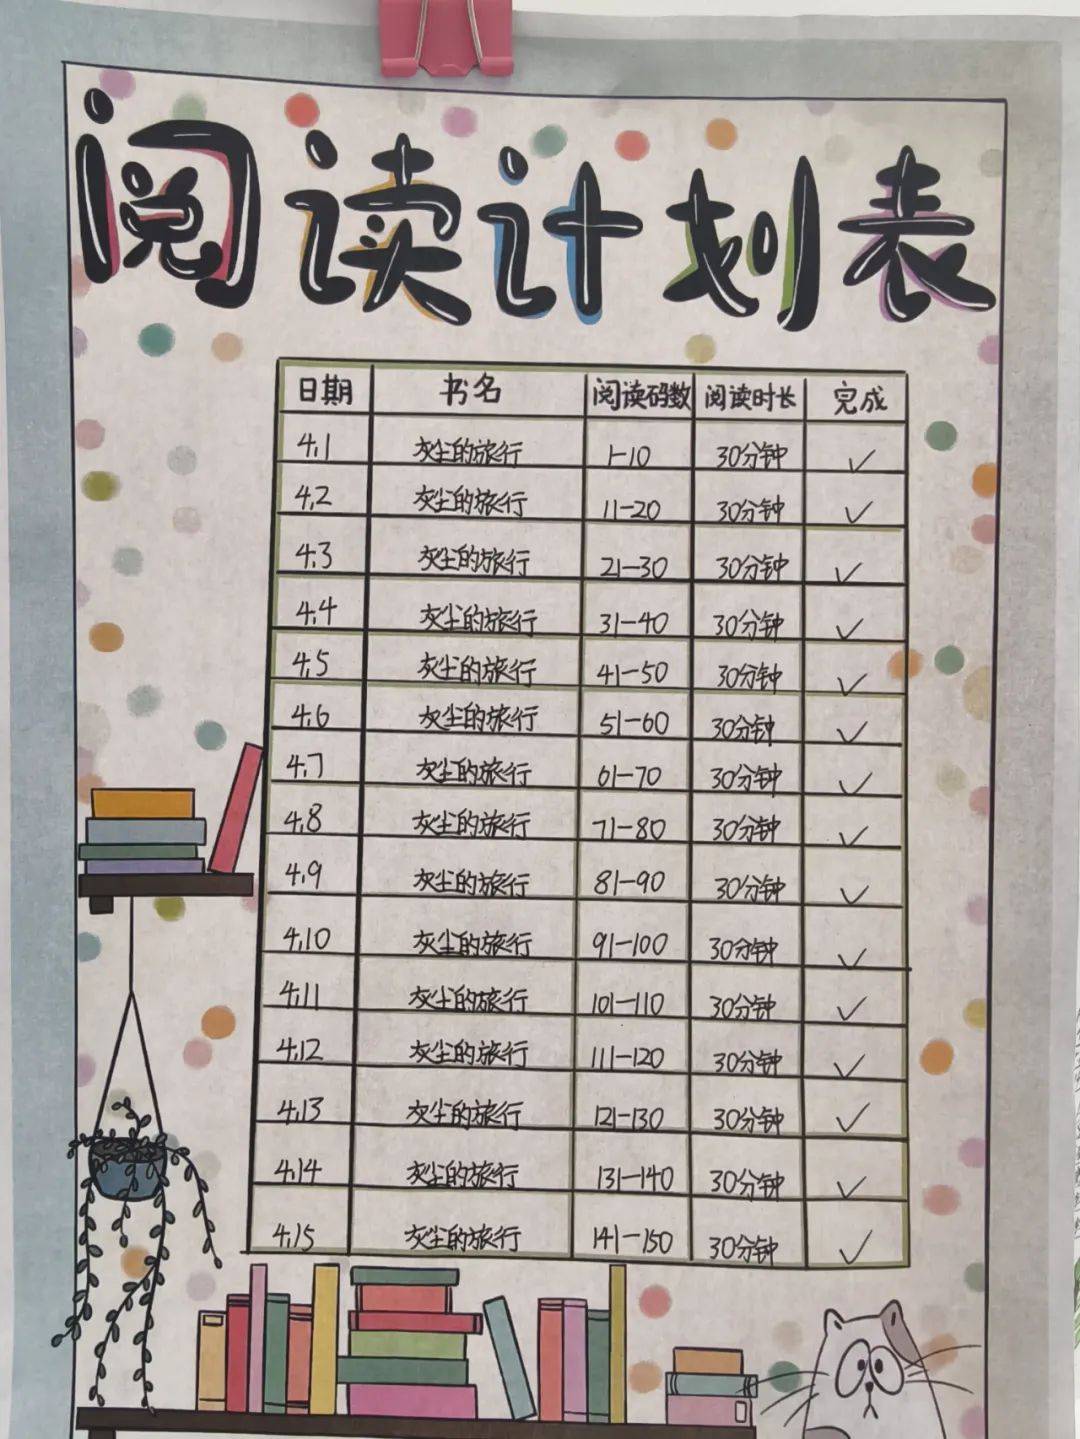 阅读计划表
日期 书名 阅读码数 阅读时长 完成
4.1 灰尘的旅行 1-10 30分钟 ✓
4.2 灰尘的旅行 11-20 30分钟 ✓
4.3 灰尘的旅行 21-30 30分钟 ✓
4.4 灰尘的旅行 31-40 30分钟 ✓
4.5 灰尘的旅行 41-50 30分钟 ✓
4.6 灰尘的旅行 51-60 30分钟 ✓
4.7 灰尘的旅行 61-70 30分钟 ✓
4.8 灰尘的旅行 71-80 30分钟 ✓
4.9 灰尘的旅行 81-90 30分钟 ✓
4.10 灰尘的旅行 91-100 30分钟 ✓
4.11 灰尘的旅行 101-110 30分钟 ✓
4.12 灰尘的旅行 111-120 30分钟 ✓
4.13 灰尘的旅行 121-130 30分钟 ✓
4.14 灰尘的旅行 131-140 30分钟 ✓
4.15 灰尘的旅行 141-150 30分钟 ✓